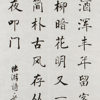 酒浑丰年留客
柳暗花明又
简朴古风存从
夜叩门
陆游诗